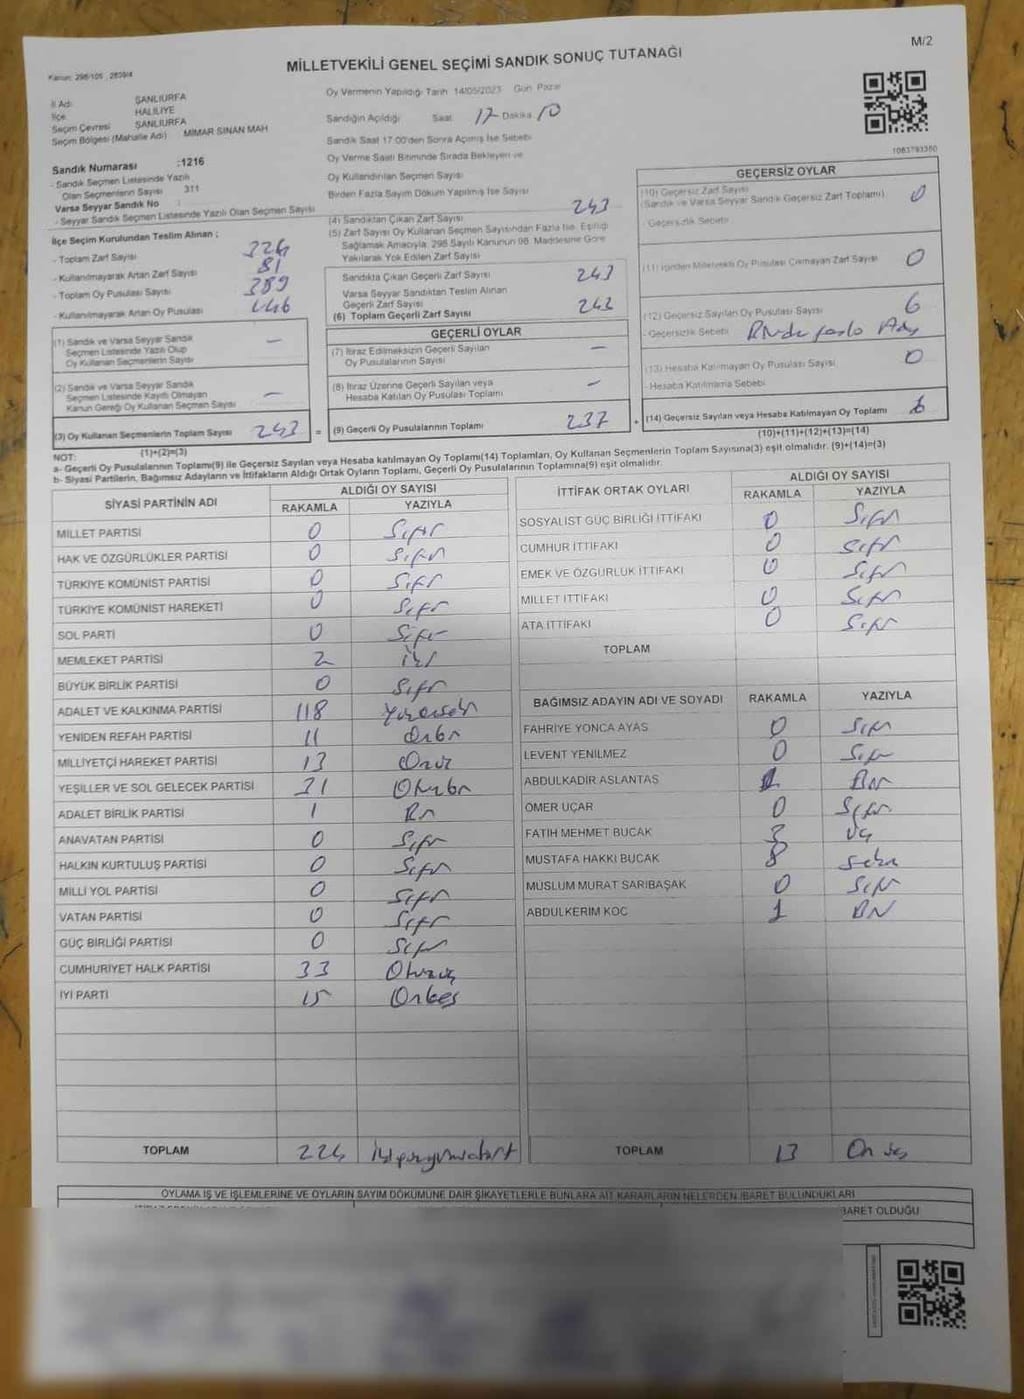 M/2
MİLLETVEKİLİ GENEL SEÇİMİ SANDIK SONUÇ TUTANAĞI
İl Adı ŞANLIURFA
İlçe HALİLİYE
Seçim Çevresi ŞANLIURFA
Seçim Bölgesi (Mahalle Adı) MİMAR SİNAN MAH
Sandık Numarası :1216
- Sandık Seçmen Listesinde Yazılı
Olan Seçmenlerin Sayısı 311
Varsa Seyyar Sandık No
- Seyyar Sandık Seçmen Listesinde Yazılı Olan Seçmen Sayısı
İlçe Seçim Kurulundan Teslim Alınan ;
- Toplam Zarf Sayısı 324
- Kullanılmayarak Artan Zarf Sayısı 81
- Toplam Oy Pusulası Sayısı 389
- Kullanılmayarak Artan Oy Pusulası 146
(1) Sandık ve Varsa Seyyar Sandık
Seçmen Listesinde Yazılı Olup
Oy Kullanan Seçmenlerin Sayısı —
(2) Sandık ve Varsa Seyyar Sandık
Seçmen Listesinde Kayıtlı Olmayan
Kanun Gereği Oy Kullanan Seçmen Sayısı —
(3) Oy Kullanan Seçmenlerin Toplam Sayısı 243 =
(1)+(2)=(3)
Oy Vermenin Yapıldığı Tarih 14/05/2023 Gün Pazar
Sandığın Açıldığı Saat 17 Dakika 10
Sandık Saat 17.00'den Sonra Açılmış İse Sebebi
Oy Verme Saati Bitiminde Sırada Bekleyen ve
Oy Kullandırılan Seçmen Sayısı
Birden Fazla Sayım Döküm Yapılmış İse Sayısı
(4) Sandıktan Çıkan Zarf Sayısı 243
(5) Zarf Sayısı Oy Kullanan Seçmen Sayısından Fazla İse, Eşitliği
Sağlamak Amacıyla, 298 Sayılı Kanunun 98. Maddesine Göre
Yakılarak Yok Edilen Zarf Sayısı
Sandıkta Çıkan Geçerli Zarf Sayısı 243
Varsa Seyyar Sandıktan Teslim Alınan
Geçerli Zarf Sayısı
(6) Toplam Geçerli Zarf Sayısı 243
GEÇERLİ OYLAR
(7) İtiraz Edilmeksizin Geçerli Sayılan
Oy Pusulalarının Sayısı —
(8) İtiraz Üzerine Geçerli Sayılan veya
Hesaba Katılan Oy Pusulası Toplamı —
(9) Geçerli Oy Pusulalarının Toplamı 237 +
1063793350
GEÇERSİZ OYLAR
(10) Geçersiz Zarf Sayısı
(Sandık ve Varsa Seyyar Sandık Geçersiz Zarf Toplamı) 0
- Geçersizlik Sebebi
(11) İçinden Milletvekili Oy Pusulası Çıkmayan Zarf Sayısı 0
(12) Geçersiz Sayılan Oy Pusulası Sayısı 6
- Geçersizlik Sebebi
(13) Hesaba Katılmayan Oy Pusulası Sayısı 0
- Hesaba Katılmama Sebebi
(14) Geçersiz Sayılan veya Hesaba Katılmayan Oy Toplamı 6
(10)+(11)+(12)+(13)=(14)
NOT:
a- Geçerli Oy Pusulalarının Toplamı(9) ile Geçersiz Sayılan veya Hesaba katılmayan Oy Toplamı(14) Toplamları, Oy Kullanan Seçmenlerin Toplam Sayısına(3) eşit olmalıdır. (9)+(14)=(3)
b- Siyasi Partilerin, Bağımsız Adayların ve İttifakların Aldığı Ortak Oyların Toplamı, Geçerli Oy Pusulalarının Toplamına(9) eşit olmalıdır.
SİYASİ PARTİNİN ADI ALDIĞI OY SAYISI
RAKAMLA YAZIYLA
MİLLET PARTİSİ 0 Sıfır
HAK VE ÖZGÜRLÜKLER PARTİSİ 0 Sıfır
TÜRKİYE KOMÜNİST PARTİSİ 0 Sıfır
TÜRKİYE KOMÜNİST HAREKETİ 0 Sıfır
SOL PARTİ 0 Sıfır
MEMLEKET PARTİSİ 2 iki
BÜYÜK BİRLİK PARTİSİ 0 Sıfır
ADALET VE KALKINMA PARTİSİ 118
YENİDEN REFAH PARTİSİ 11 Onbir
MİLLİYETÇİ HAREKET PARTİSİ 13 Onüç
YEŞİLLER VE SOL GELECEK PARTİSİ 31 Otuzbir
ADALET BİRLİK PARTİSİ 1 Bir
ANAVATAN PARTİSİ 0 Sıfır
HALKIN KURTULUŞ PARTİSİ 0 Sıfır
MİLLİ YOL PARTİSİ 0 Sıfır
VATAN PARTİSİ 0 Sıfır
GÜÇ BİRLİĞİ PARTİSİ 0 Sıfır
CUMHURİYET HALK PARTİSİ 33 Otuzüç
İYİ PARTİ 15 Onbeş
TOPLAM 224 ikiyüzyirmidört
İTTİFAK ORTAK OYLARI ALDIĞI OY SAYISI
RAKAMLA YAZIYLA
SOSYALİST GÜÇ BİRLİĞİ İTTİFAKI 0 Sıfır
CUMHUR İTTİFAKI 0 Sıfır
EMEK VE ÖZGÜRLÜK İTTİFAKI 0 Sıfır
MİLLET İTTİFAKI 0 Sıfır
ATA İTTİFAKI 0 Sıfır
TOPLAM
BAĞIMSIZ ADAYIN ADI VE SOYADI RAKAMLA YAZIYLA
FAHRİYE YONCA AYAS 0 Sıfır
LEVENT YENİLMEZ 0 Sıfır
ABDULKADİR ASLANTAŞ 1 Bir
ÖMER UÇAR 0 Sıfır
FATİH MEHMET BUCAK 3 Üç
MUSTAFA HAKKI BUCAK 8 Sekiz
MÜSLÜM MURAT SARIBAŞAK 0 Sıfır
ABDULKERİM KOÇ 1 BİR
TOPLAM 13 On üç
OYLAMA İŞ VE İŞLEMLERİNE VE OYLARIN SAYIM DÖKÜMÜNE DAİR ŞİKAYETLERLE BUNLARA AİT KARARLARIN NELERDEN İBARET BULUNDUKLARI
BARET OLDUĞU